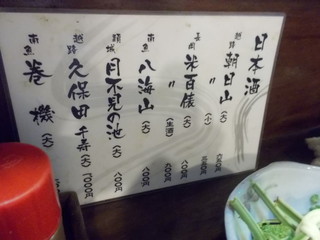 日本酒
越路 朝日山 (大)
〃 (小)
長岡 米百俵 (大)
〃 (生酒)
南魚 八海山 (大)
頚城 月不見の池 (大) 八〇〇円
越路 久保田 千寿 (大) 1000円
南魚 巻機 (大)